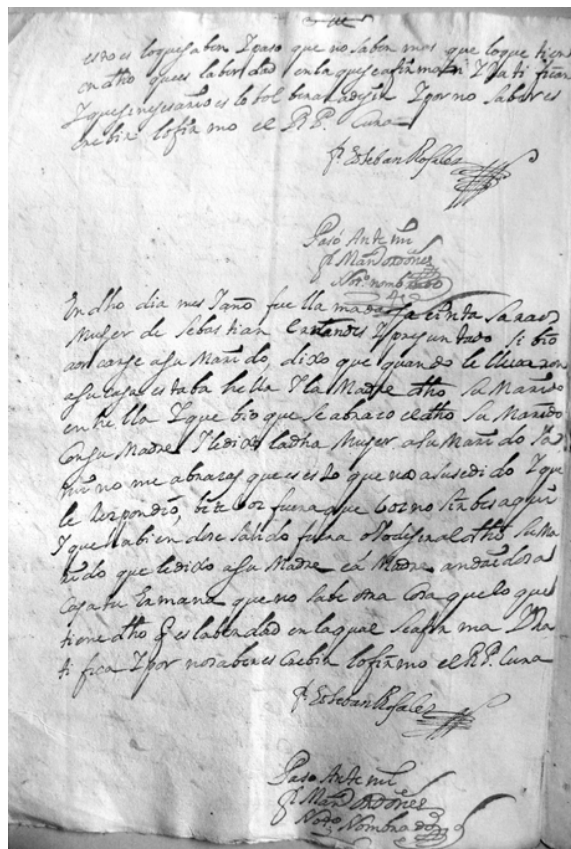 esto es lo que saben Y paso que no saben mas que lo que tiene
en dho que es la berdad en la que se afirman Y Ratifican
Y que si nesesario es lo bolberan a desir Y por no saber es
crebir lo firmo el R P. Cura
fr Esteban Rosales
Pasó Ante mi
fr Man Ordoñes
Noto nombrado
En dho dia mes Y año fue llamada Jacinta
Muger de Sebastian Y preguntado si bio
a su Marido, dixo que quando le llevaron
a su casa estaba hella Y la Madre dho su Marido
en hella Y que bio que se abrazo el dho su Marido
Con su Madre Y le dixo la dha Muger a su Marido
no me abrazas que es esto que te a susedido Y que
le Respondió, bete por fuera que boz no sirbes aqui
Y que habiendose salido fuera oyo desir al dho su Ma
rido que le dixo a su Madre ea Madre
Coja tu Ermana que no sabe otra Cosa que lo que
tiene dho q es la berdad en la qual se afirma Y Ra
tifica Y por no saber escrebir lo firmo el R P. Cura
fr Esteban Rosales
Paso Ante mi
fr Man Ordoñes
Noto Nombrado